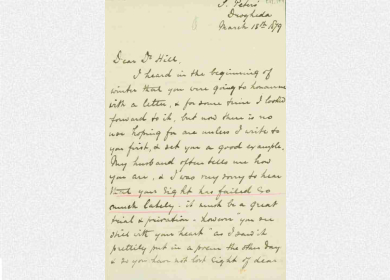 S. Peters
Drogheda
March 18th 1879
Dear Dr Hill,
I heard in the beginning of
winter that you were going to honour me
with a letter, & for some time I looked
forward to it, but now there is no
use hoping for one unless I write to
you first, & set you a good example.
My husband often tells me how
you are, & I was very sorry to hear
that your sight has failed so
much lately - it must be a great
trial & privation - however "you see
still with your heart" as I said it
prettily put in a poem the other day
& as you have not lost sight of dear